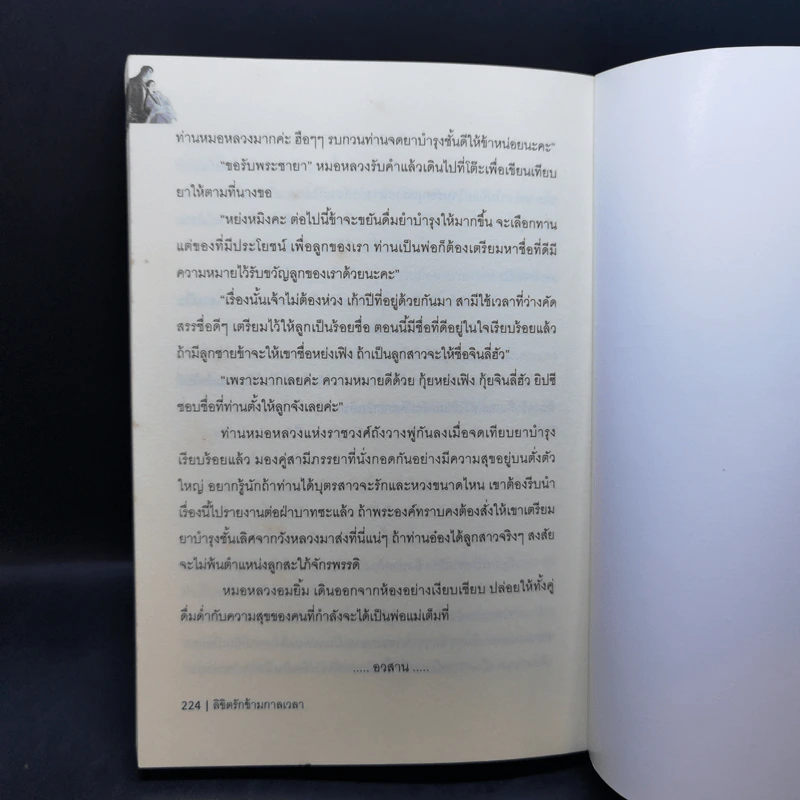 ท่านหมอหลวงมากค่ะ ฮือๆๆ รบกวนท่านจดยาบำรุงชั้นดีให้ข้าหน่อยนะคะ”
“ขอรับพระชายา” หมอหลวงรับคำแล้วเดินไปที่โต๊ะเพื่อเขียนเทียบ
ยาให้ตามที่นางขอ
“หย่งหมิงคะ ต่อไปนี้ข้าจะขยันดื่มยำบำรุงให้มากขึ้น จะเลือกทาน
แต่ของที่มีประโยชน์ เพื่อลูกของเรา ท่านเป็นพ่อก็ต้องเตรียมหาชื่อที่ดีมี
ความหมายไว้รับขวัญลูกของเราด้วยนะคะ”
“เรื่องนั้นเจ้าไม่ต้องห่วง เก้าปีที่อยู่ด้วยกันมา สามีใช้เวลาที่ว่างคัด
สรรชื่อดีๆ เตรียมไว้ให้ลูกเป็นร้อยชื่อ ตอนนี้มีชื่อที่ดีอยู่ในใจเรียบร้อยแล้ว
ถ้ามีลูกชายข้าจะให้เขาชื่อหย่งเฟิง ถ้าเป็นลูกสาวจะให้ชื่อจินลี่ฮัว”
“เพราะมากเลยค่ะ ความหมายดีด้วย กุ้ยหย่งเฟิง กุ้ยจินลี่ฮัว ยิปซี
ชอบชื่อที่ท่านตั้งให้ลูกจังเลยค่ะ”
ท่านหมอหลวงแห่งราชวงศ์ถังวางพู่กันลงเมื่อจดเทียบยาบำรุง
เรียบร้อยแล้ว มองคู่สามีภรรยาที่นั่งกอดกันอย่างมีความสุขอยู่บนตั่งตัว
ใหญ่ อยากรู้นักถ้าท่านได้บุตรสาวจะรักและหวงขนาดไหน เขาต้องรีบนำ
เรื่องนี้ไปรายงานต่อฝ่าบาทซะแล้ว ถ้าพระองค์ทราบคงต้องสั่งให้เขาเตรียม
ยาบำรุงชั้นเลิศจากวังหลวงมาส่งที่นี่แน่ๆ ถ้าท่านอ๋องได้ลูกสาวจริงๆ สงสัย
จะไม่พ้นตำแหน่งลูกสะใภ้จักรพรรดิ
หมอหลวงอมยิ้ม เดินออกจากห้องอย่างเงียบเชียบ ปล่อยให้ทั้งคู่
ดื่มด่ำกับความสุขของคนที่กำลังจะได้เป็นพ่อแม่เต็มที่
..... อวสาน .....
224 | ลิขิตรักข้ามกาลเวลา